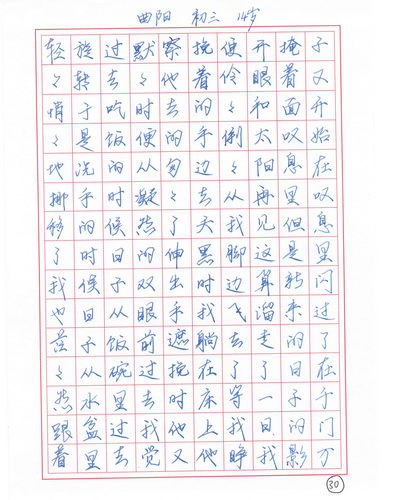 曲阳 初三 14岁
轻々悄々地挪移了我也茫々然跟着
旋转子是洗手的时候日子从水盆里
过去吃饭的时候日子饭碗里过去
默々时便从凝然的双眼前过去我觉
察他去的匆々了伸出手遮挽时他又
挽着的手边去天黑时我躺在床上他
便伶々俐々从我脚边飞去了等我睁
开眼和太阳再见这算溜走了一日我
掩着面叹息里但是新来的日子的影
子又开始在叹息里闪过了在千门万
30